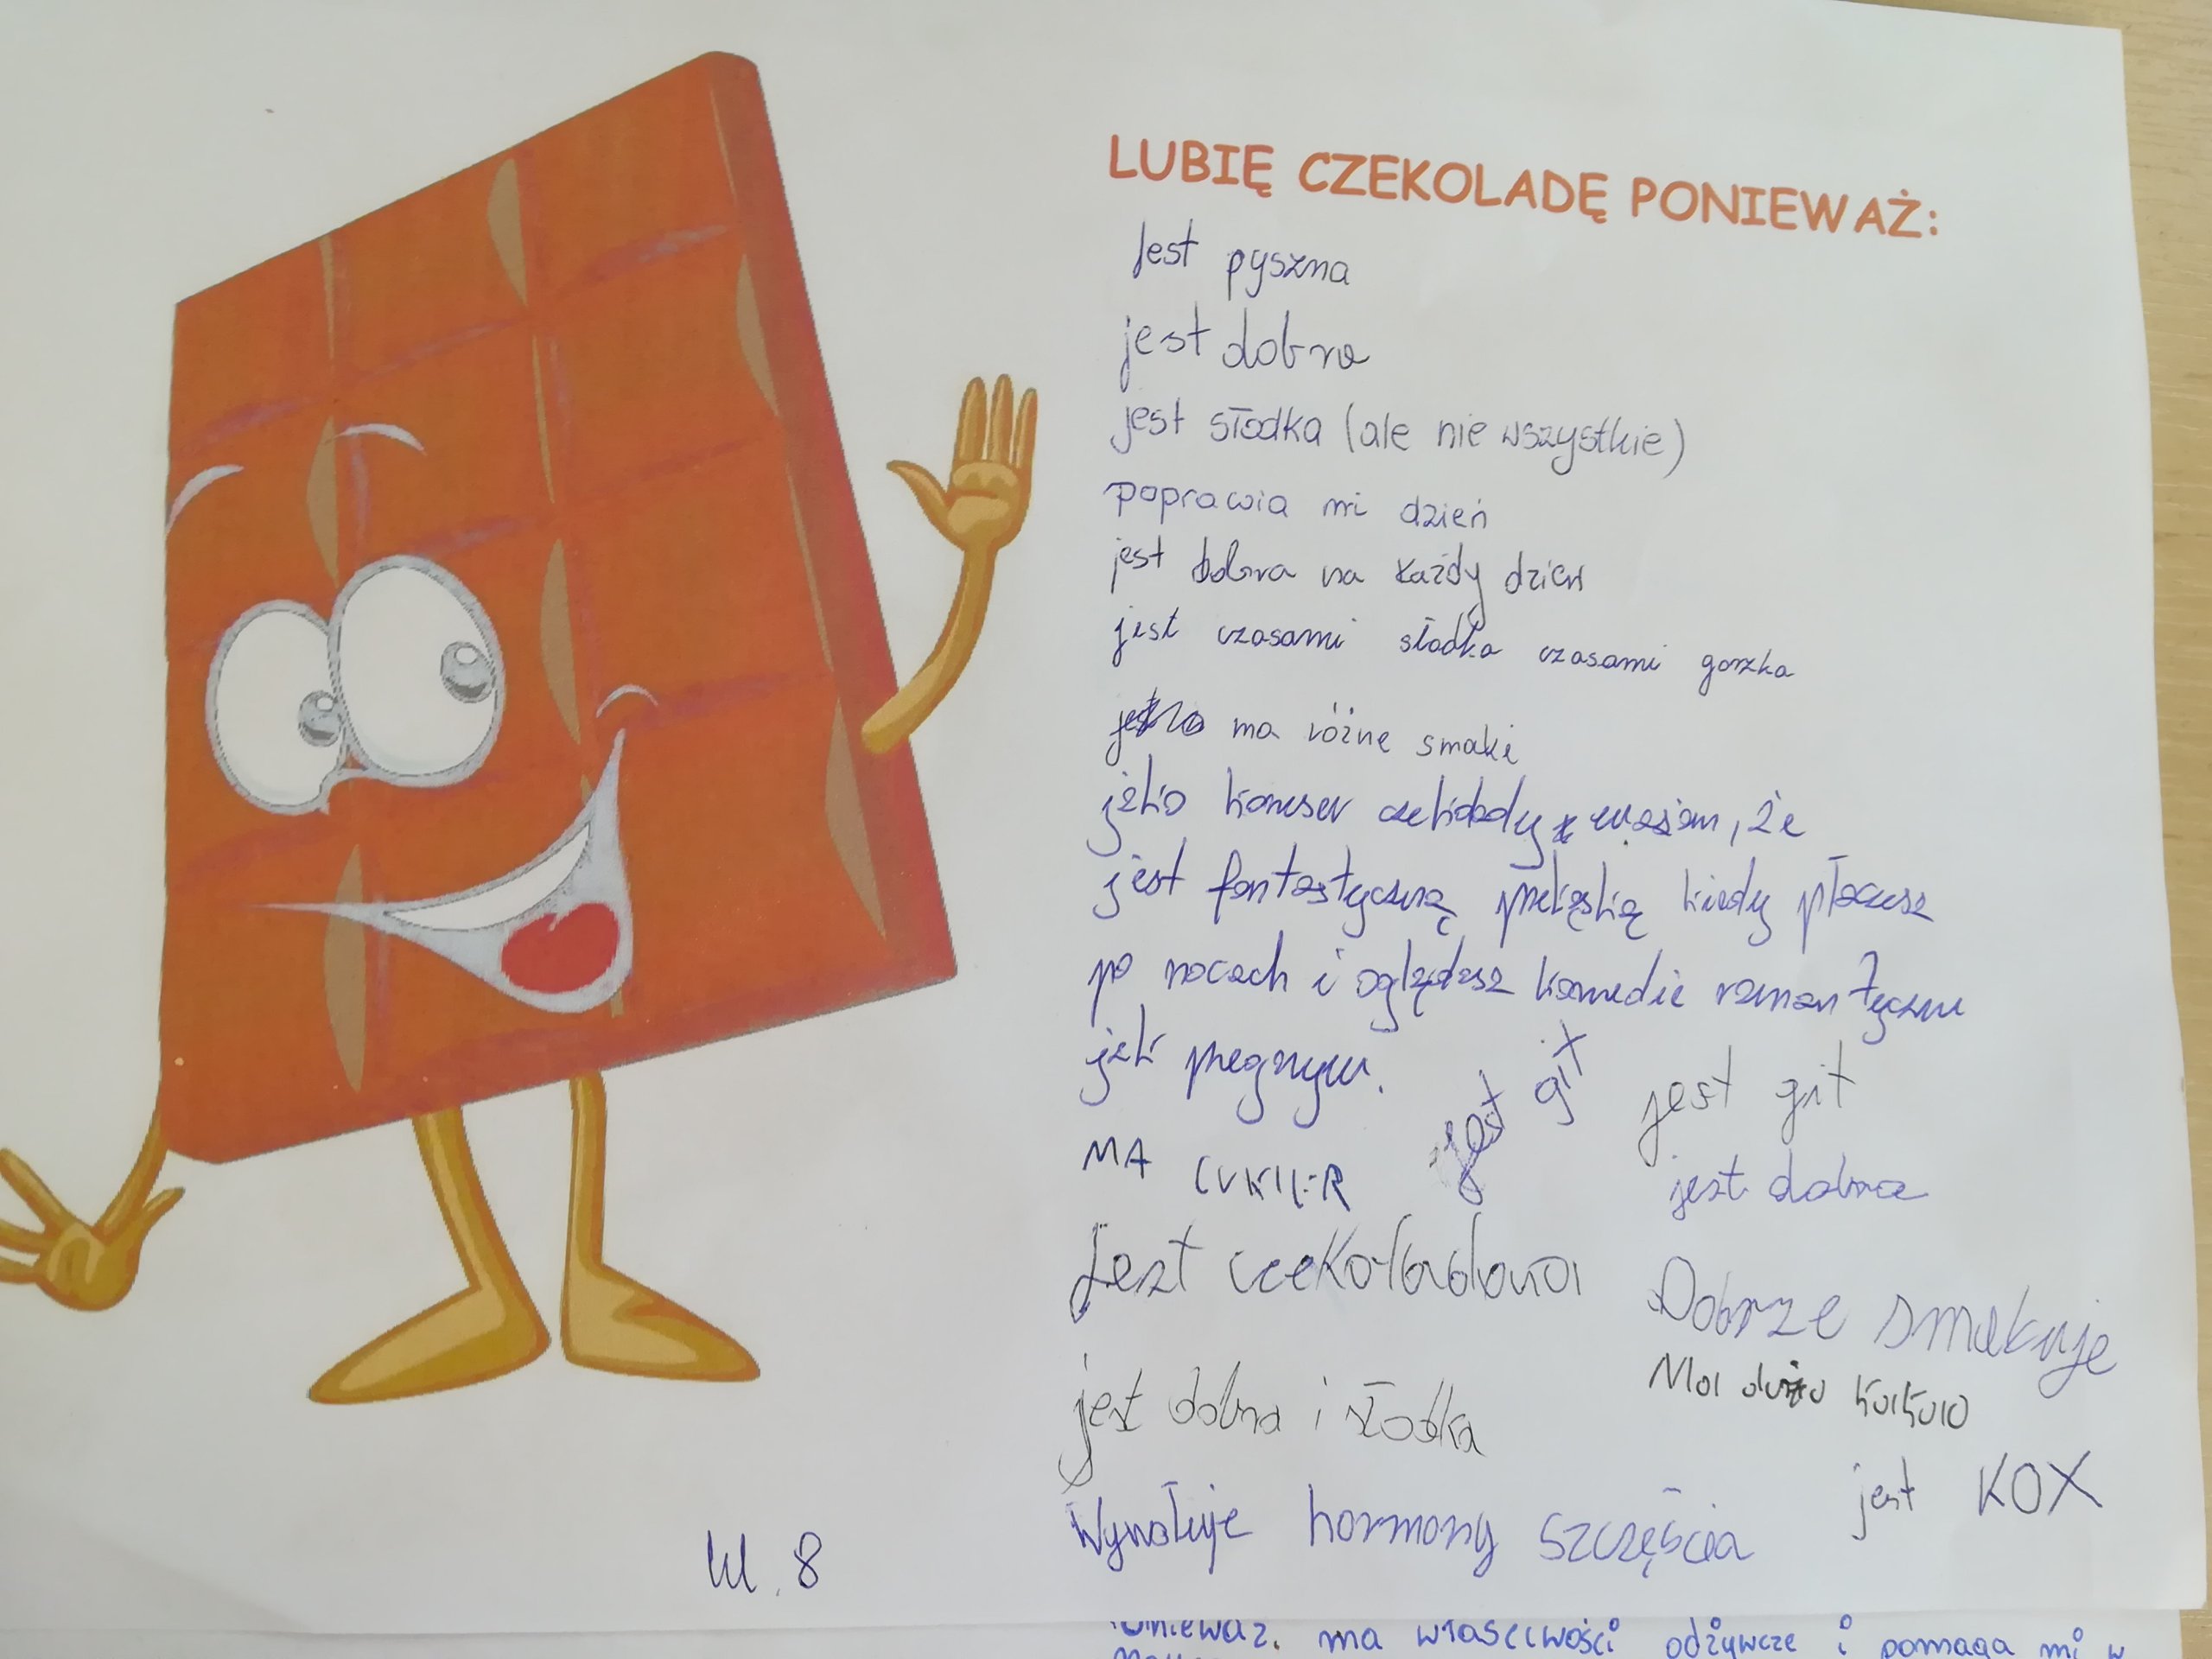 LUBIĘ CZEKOLADĘ PONIEWAŻ:
Jest pyszna
jest dobra
jest słodka (ale nie wszystkie)
poprawia mi dzień
jest dobra na każdy dzień
jest czasami słodka czasami gorzka
ma różne smaki
jako koneser czekolady uważam, że
jest fantastyczną przekąską kiedy płaczesz
po nocach i oglądasz komedie romantyczne
jak
MA CUKIER
jest git
jest git
jest dobra
Jest czekoladowa
Dobrze smakuje
jest dobra i słodka
Ma dużo kakao
Wywołuje hormony szczęścia
jest KOX
kl. 8
ma właściwości odżywcze i pomaga mi w